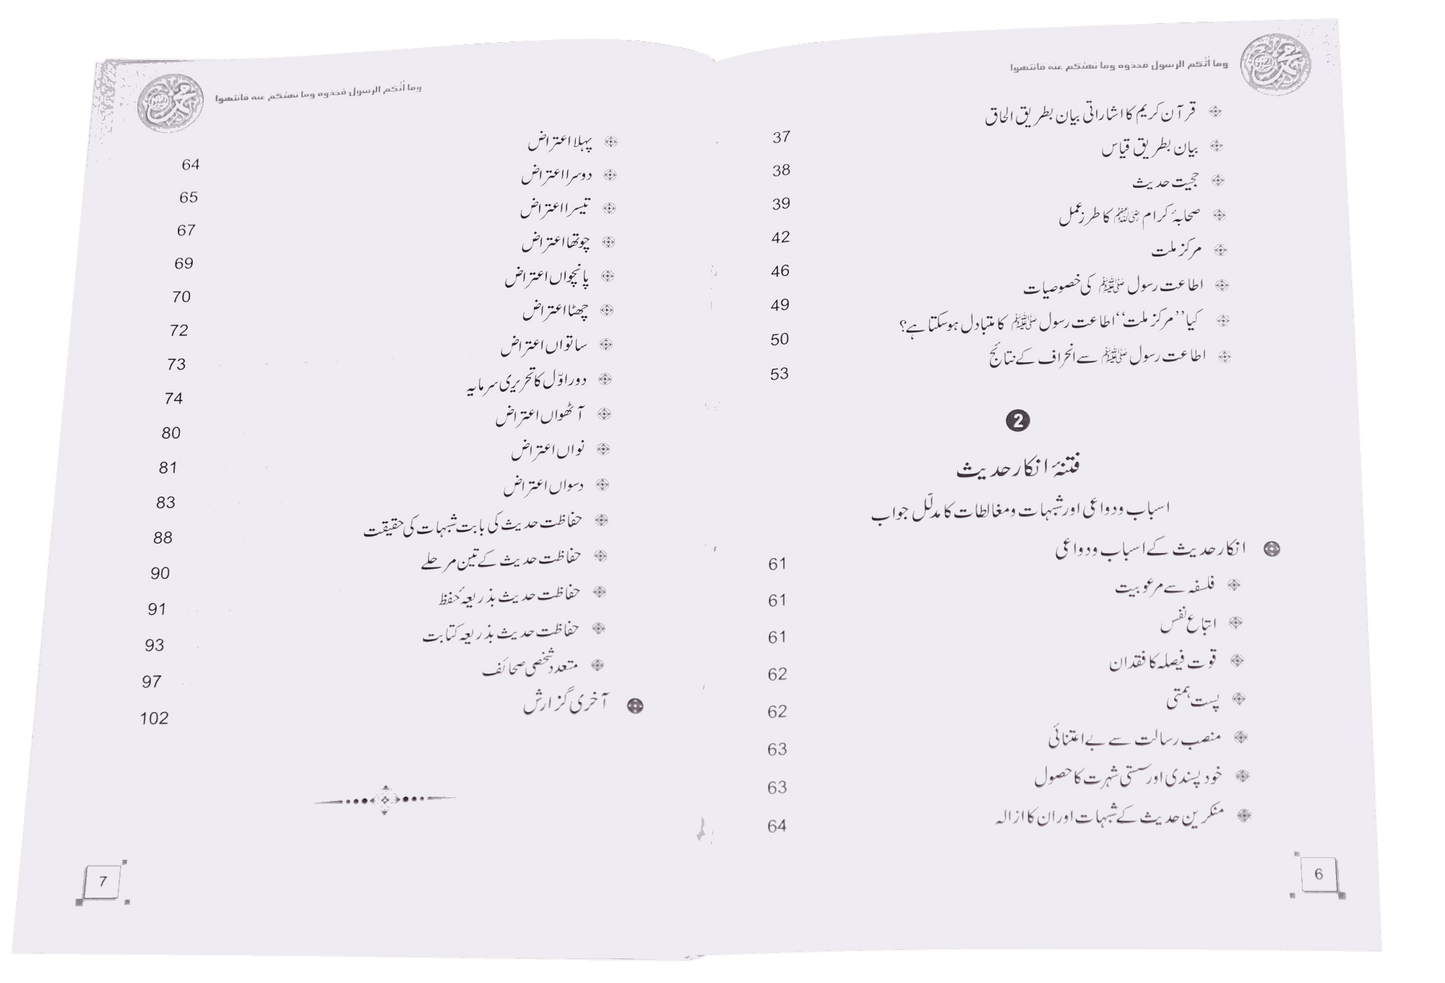 وما أتكم الرسول فخذوه وما نهىكم عنه فانتهوا
قرآن کریم کا اشاراتی بیان بطریق الحاق 37
بیان بطریق قیاس 38
حجیت حدیث 39
صحابۂ کرام کا طرز عمل 42
مرکز ملت 46
اطاعت رسول ﷺ کی خصوصیات 49
کیا ’’مرکز ملت‘‘ اطاعت رسول ﷺ کا متبادل ہوسکتا ہے؟ 50
اطاعت رسول ﷺ سے انحراف کے نتائج 53
2
فتنۂ انکار حدیث
اسباب ودواعی اور شبہات ومغالطات کا مدلّل جواب
انکار حدیث کے اسباب ودواعی 61
فلسفہ سے مرعوبیت 61
اتباع نفس 61
قوت فیصلہ کا فقدان 62
پست ہمتی 62
منصب رسالت سے بے اعتنائی 63
خود پسندی اور سستی شہرت کا حصول 63
منکرین حدیث کے شبہات اور ان کا ازالہ 64
6
وما أتكم الرسول فخذوه وما نهىكم عنه فانتهوا
پہلا اعتراض 64
دوسرا اعتراض 65
تیسرا اعتراض 67
چوتھا اعتراض 69
پانچواں اعتراض 70
چھٹا اعتراض 72
ساتواں اعتراض 73
دور اوّل کا تحریری سرمایہ 74
آٹھواں اعتراض 80
نواں اعتراض 81
دسواں اعتراض 83
حفاظت حدیث کی بابت شبہات کی حقیقت 88
حفاظت حدیث کے تین مرحلے 90
حفاظت حدیث بذریعہ حفظ 91
حفاظت حدیث بذریعہ کتابت 93
متعدد شخصی صحائف 97
آخری گزارش 102
7